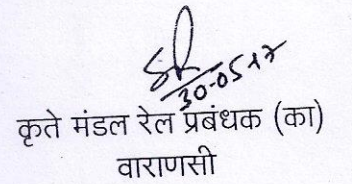 30-05-17
कृते मंडल रेल प्रबंधक (का)
वाराणसी